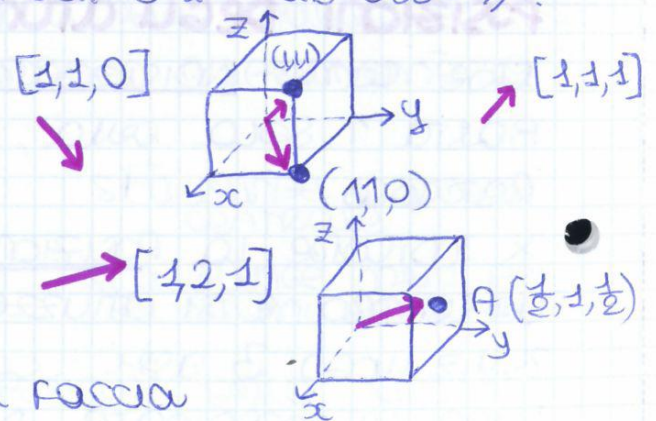 [1,1,0]
z
(1,1,1)
y
x
(1,1,0)
[1,1,1]
[1,2,1]
z
A (1/2, 1, 1/2)
y
x
faccia